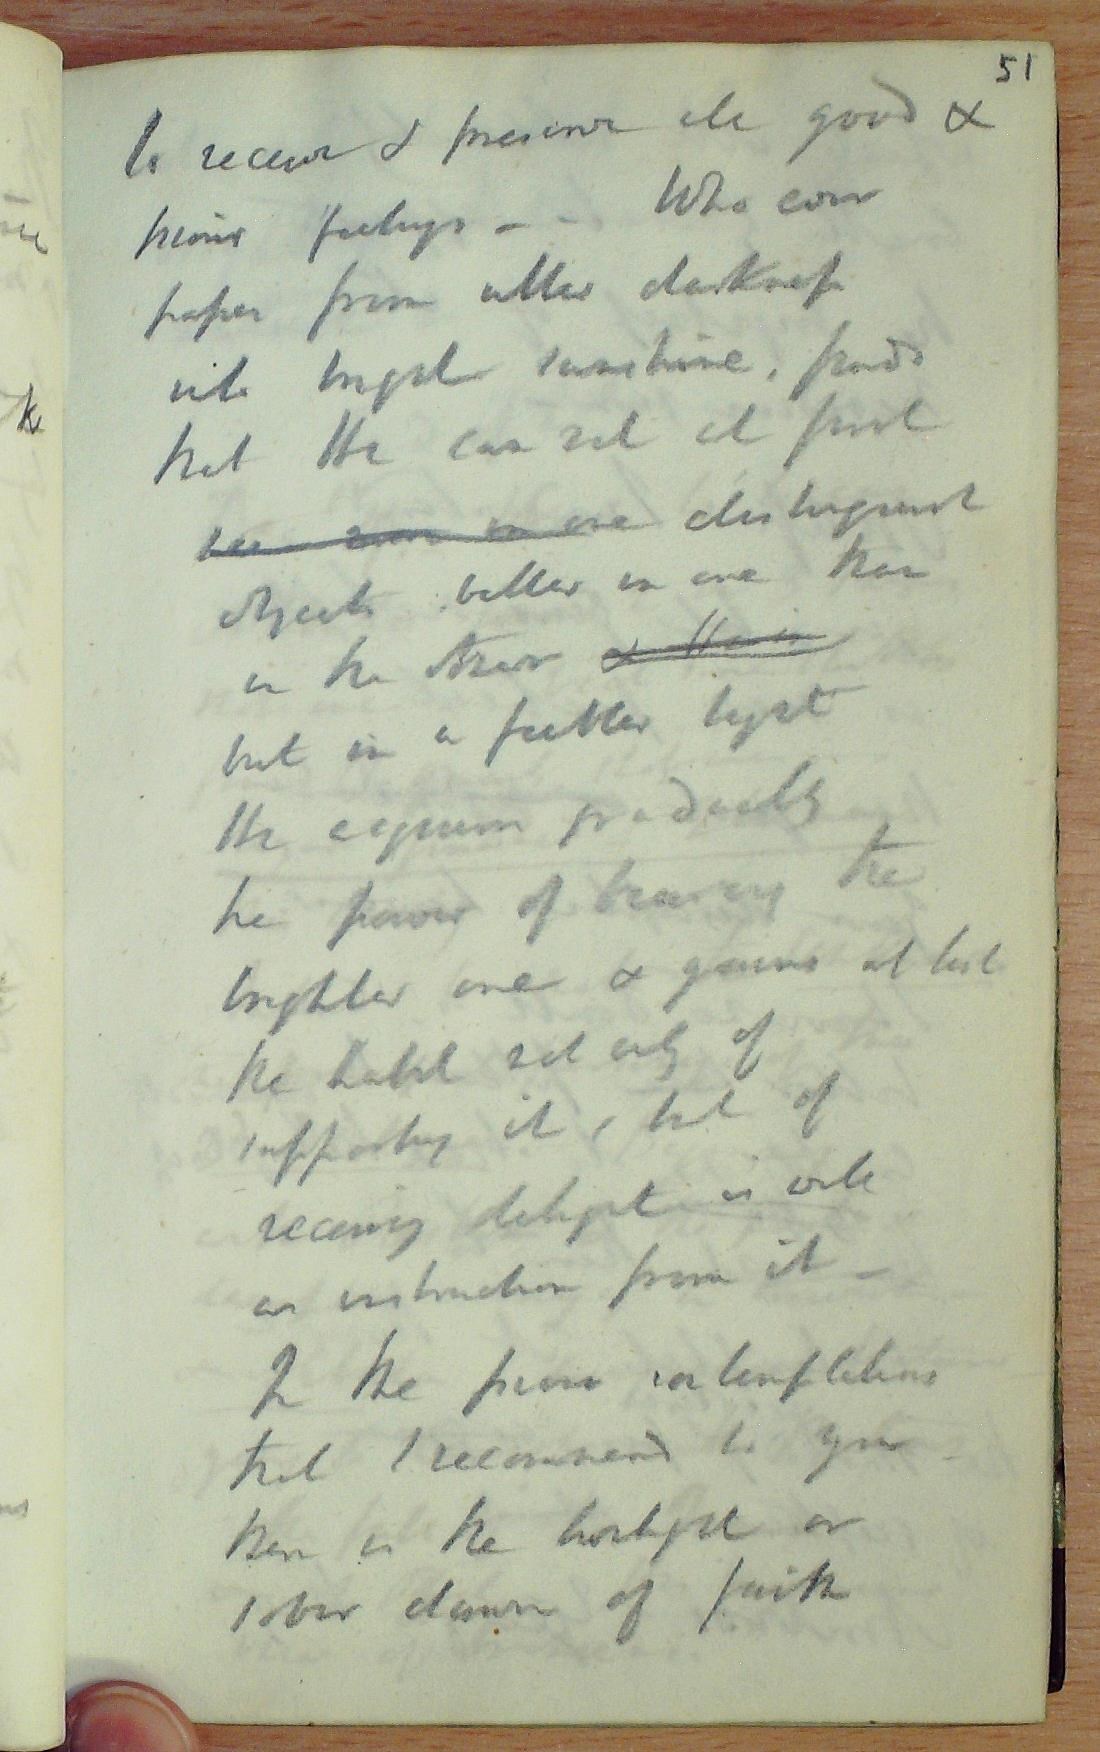 51
to receive & preserve its good &
pious feelings - - Who ever
passes from utter darkness
into bright sunshine, finds
that He can not at first
see even in one distinguish
objects better in one than
in the other & He is
but in a feebler light
He acquires gradually
the power of bearing the
brighter one & gains at last
the habit not only of
supporting it, but of
receiving delight as well
as instruction from it -
In the pious contemplations
that I recommend to you
there is the twilight or
sober dawn of faith